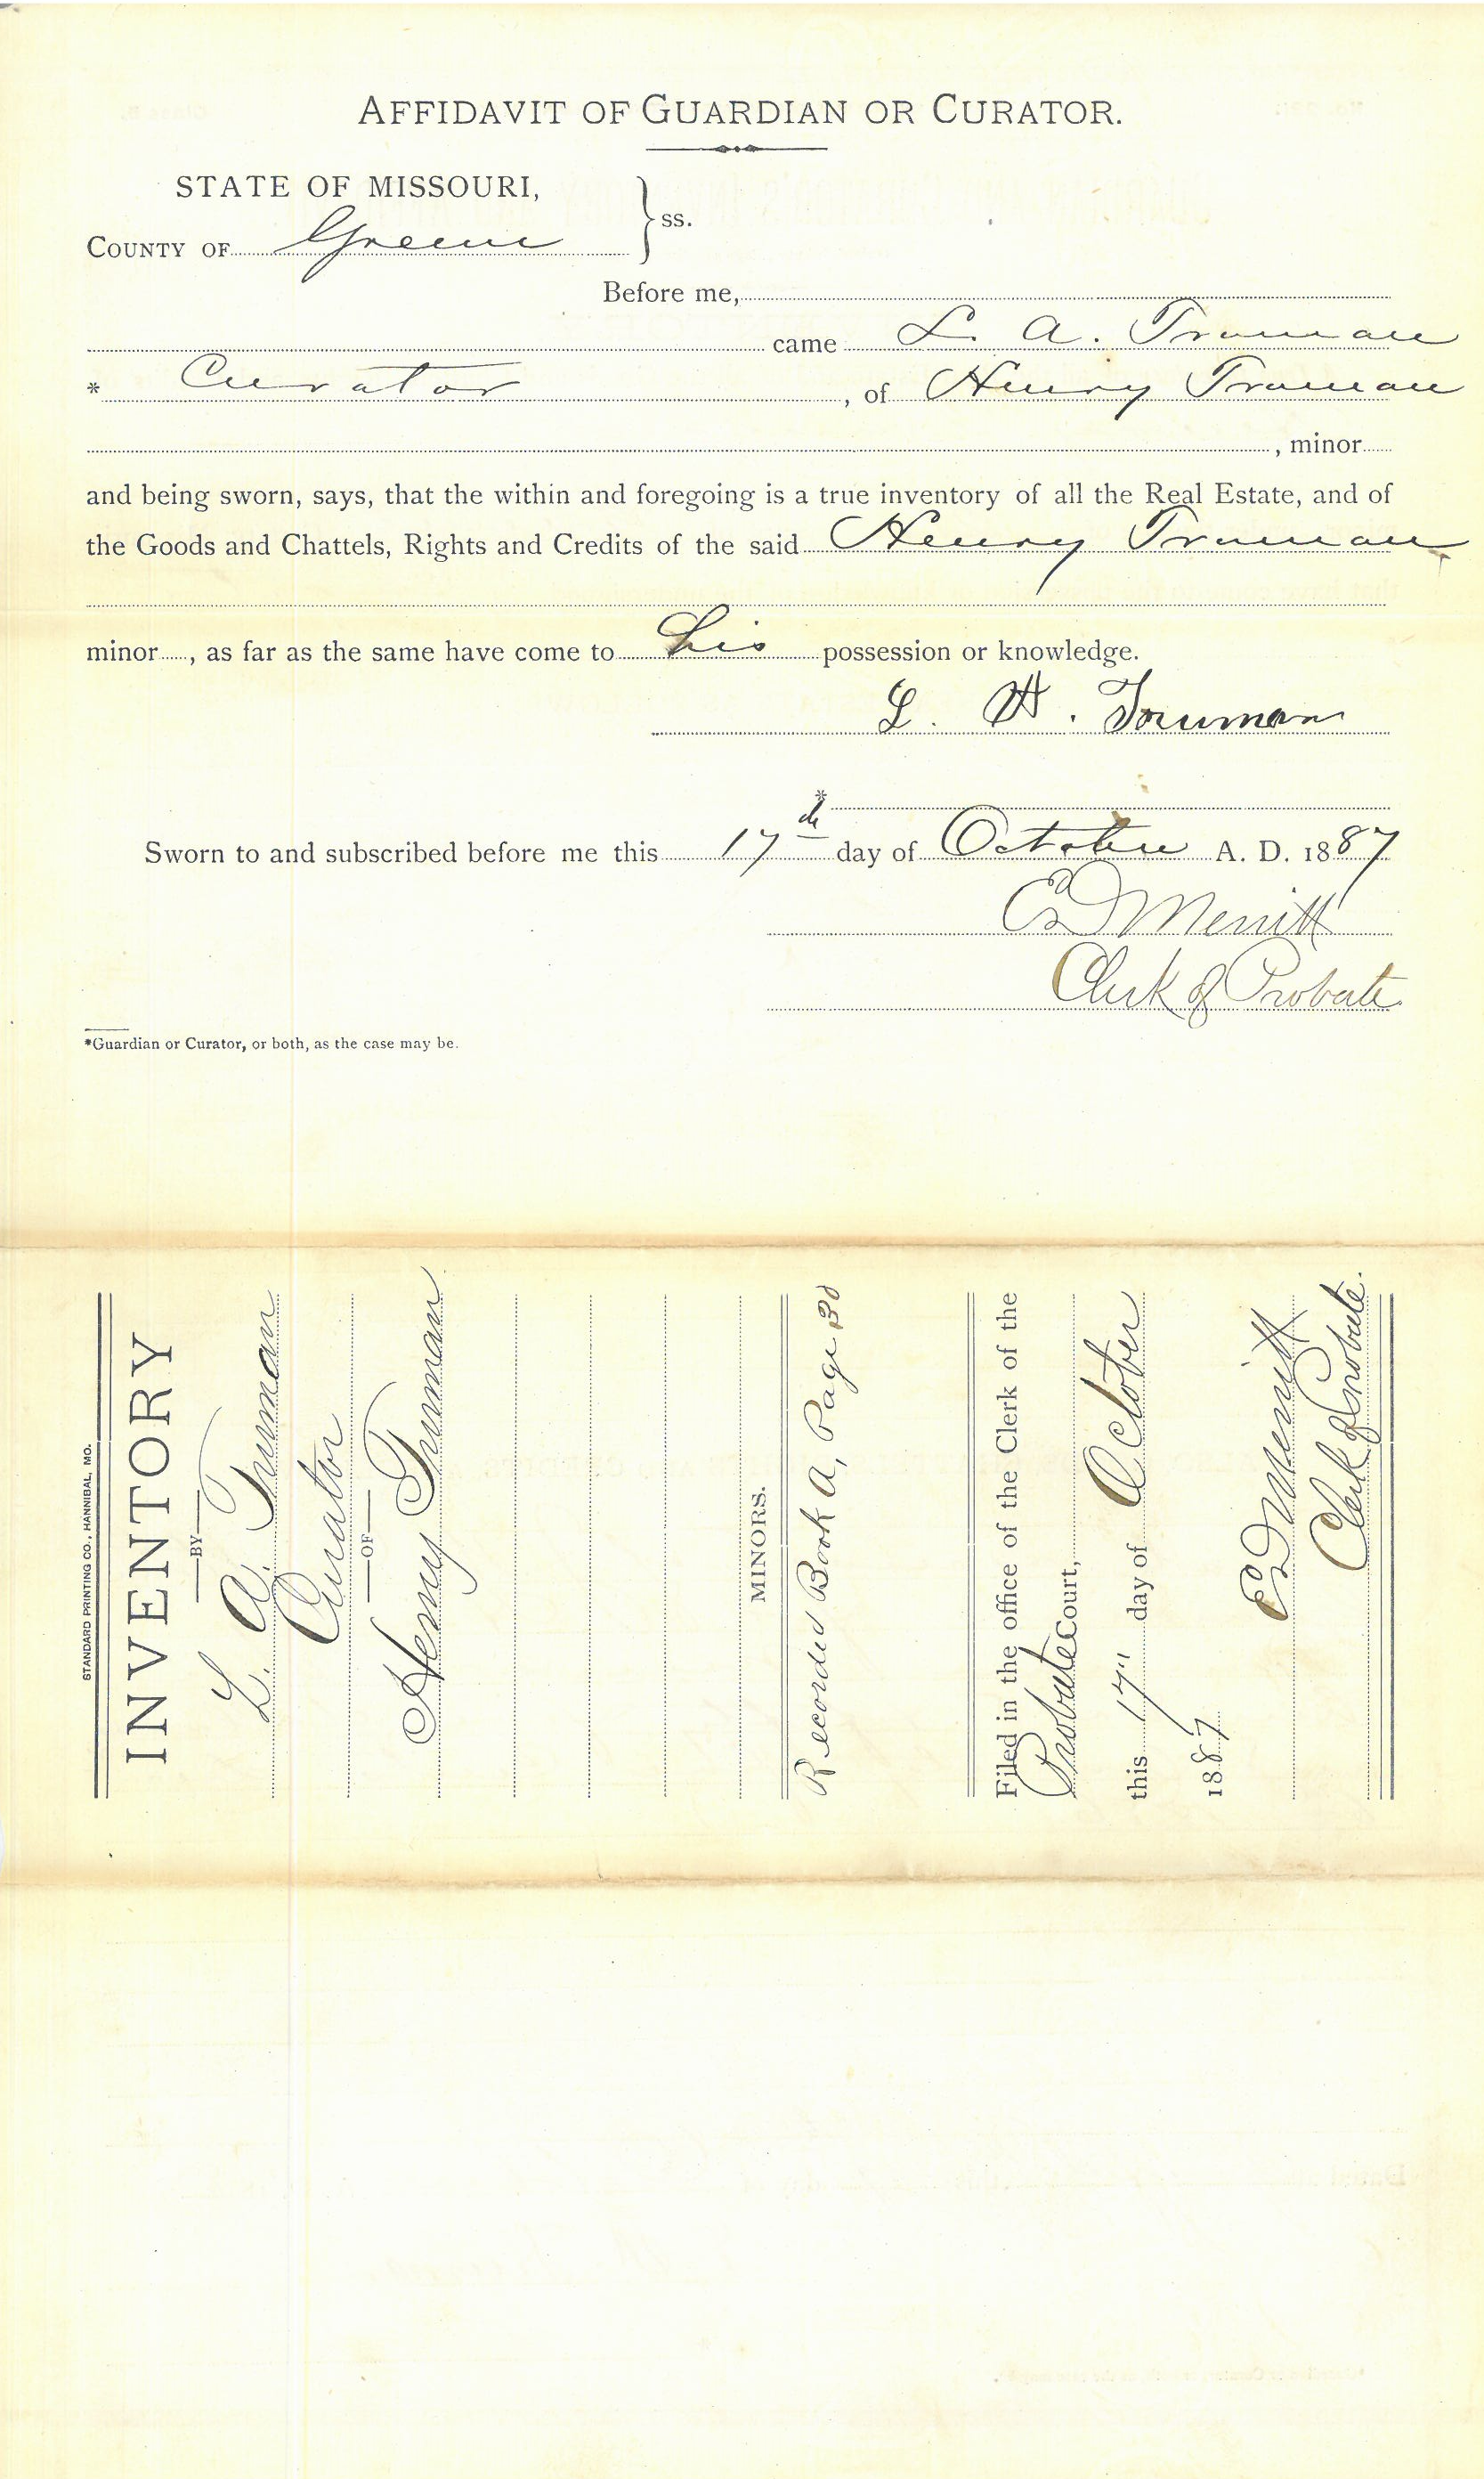 AFFIDAVIT OF GUARDIAN OR CURATOR.
STATE OF MISSOURI,
COUNTY OF Greene } ss.
Before me,
came L. A. Truman
* Curator, of Henry Truman
, minor
and being sworn, says, that the within and foregoing is a true inventory of all the Real Estate, and of
the Goods and Chattels, Rights and Credits of the said Henry Truman
minor, as far as the same have come to his possession or knowledge.
L. A. Truman
*
Sworn to and subscribed before me this 17th day of October A. D. 1887
ED Merritt
Clerk of Probate
*Guardian or Curator, or both, as the case may be.
STANDARD PRINTING CO., HANNIBAL, MO.
INVENTORY
BY
L. A. Truman
Curator
OF
Henry Truman
MINORS.
Recorded Book A, Page 130
Filed in the office of the Clerk of the
Probate Court,
this 17" day of October
1887
ED Merritt
Clerk of Probate.